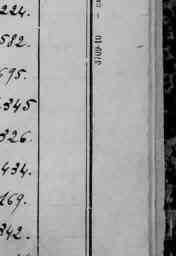 224.
582.
695.
345
326.
434.
169.
342.
3709-10